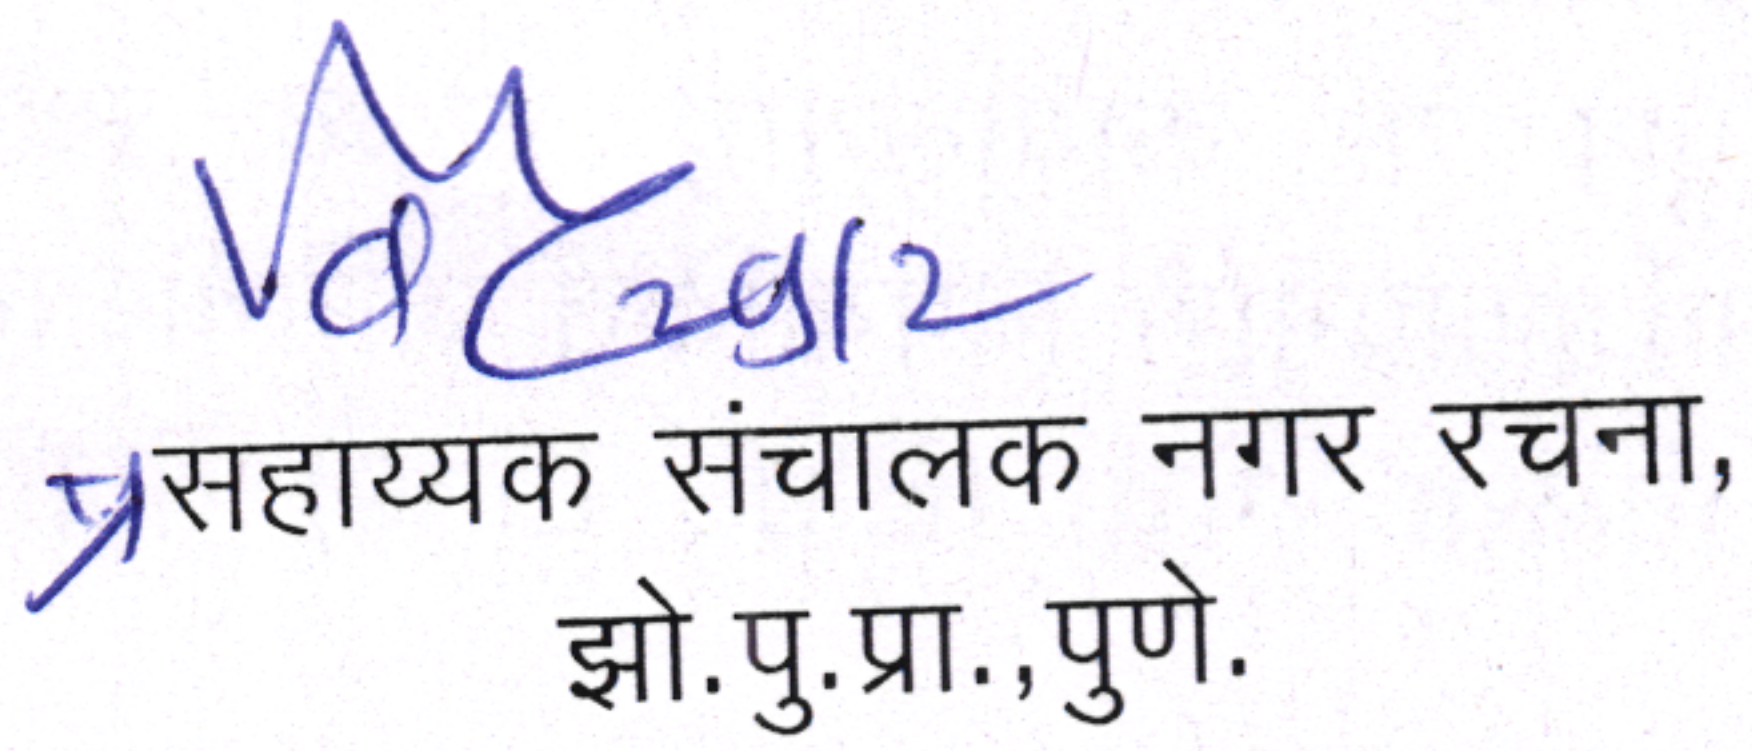 29/2
प्र सहाय्यक संचालक नगर रचना,
झो.पु.प्रा.,पुणे.